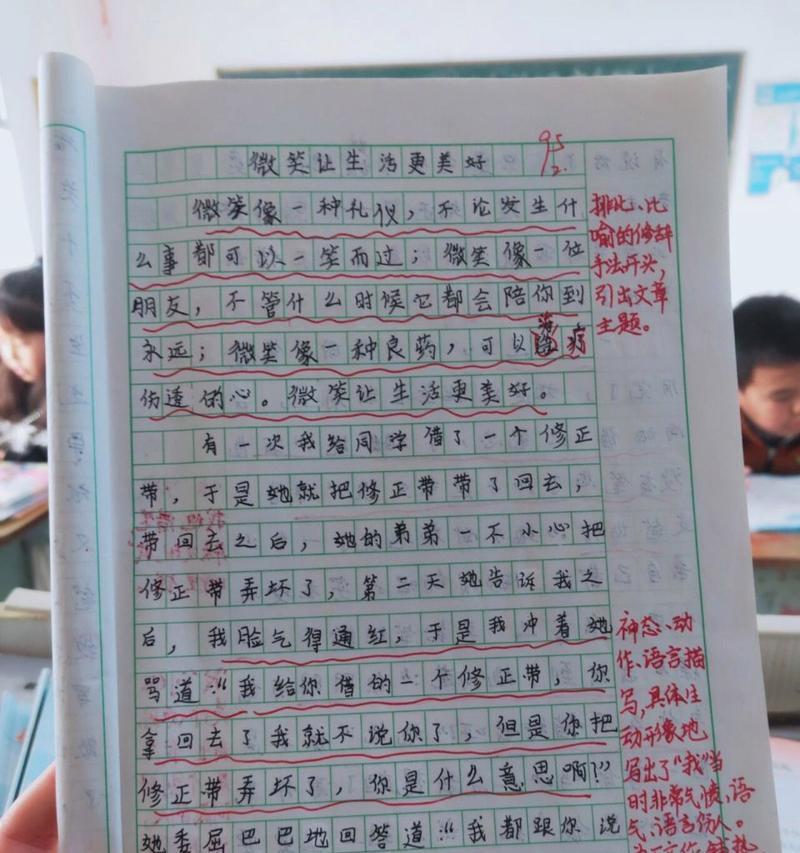 微笑让生活更美好
95
2.
微笑像一种礼仪，不论发生什
么事都可以一笑而过；微笑像一位
朋友，不管什么时候它都会陪你到
永远；微笑像一种良药，可以治疗
伤透的心。微笑让生活更美好。
有一次我给同学借了一个修正
带，于是她就把修正带带了回去，
带回去之后，她的弟弟一不小心把
修正带弄坏了，第二天她告诉我之
后，我脸气得通红，于是我冲着她
骂道：“我给你借的一个修正带，你
拿回去了我就不说你了，但是你把
修正带弄坏了，你是什么意思啊！”
她委屈巴巴地回答道：“我都跟你说
排比、比
喻的修辞
手法开头，
引出文章
主题。
神态、动
作、语言描
写，具体生
动形象地
写出了“我”当
时非常气愤，语
气、语言伤人。